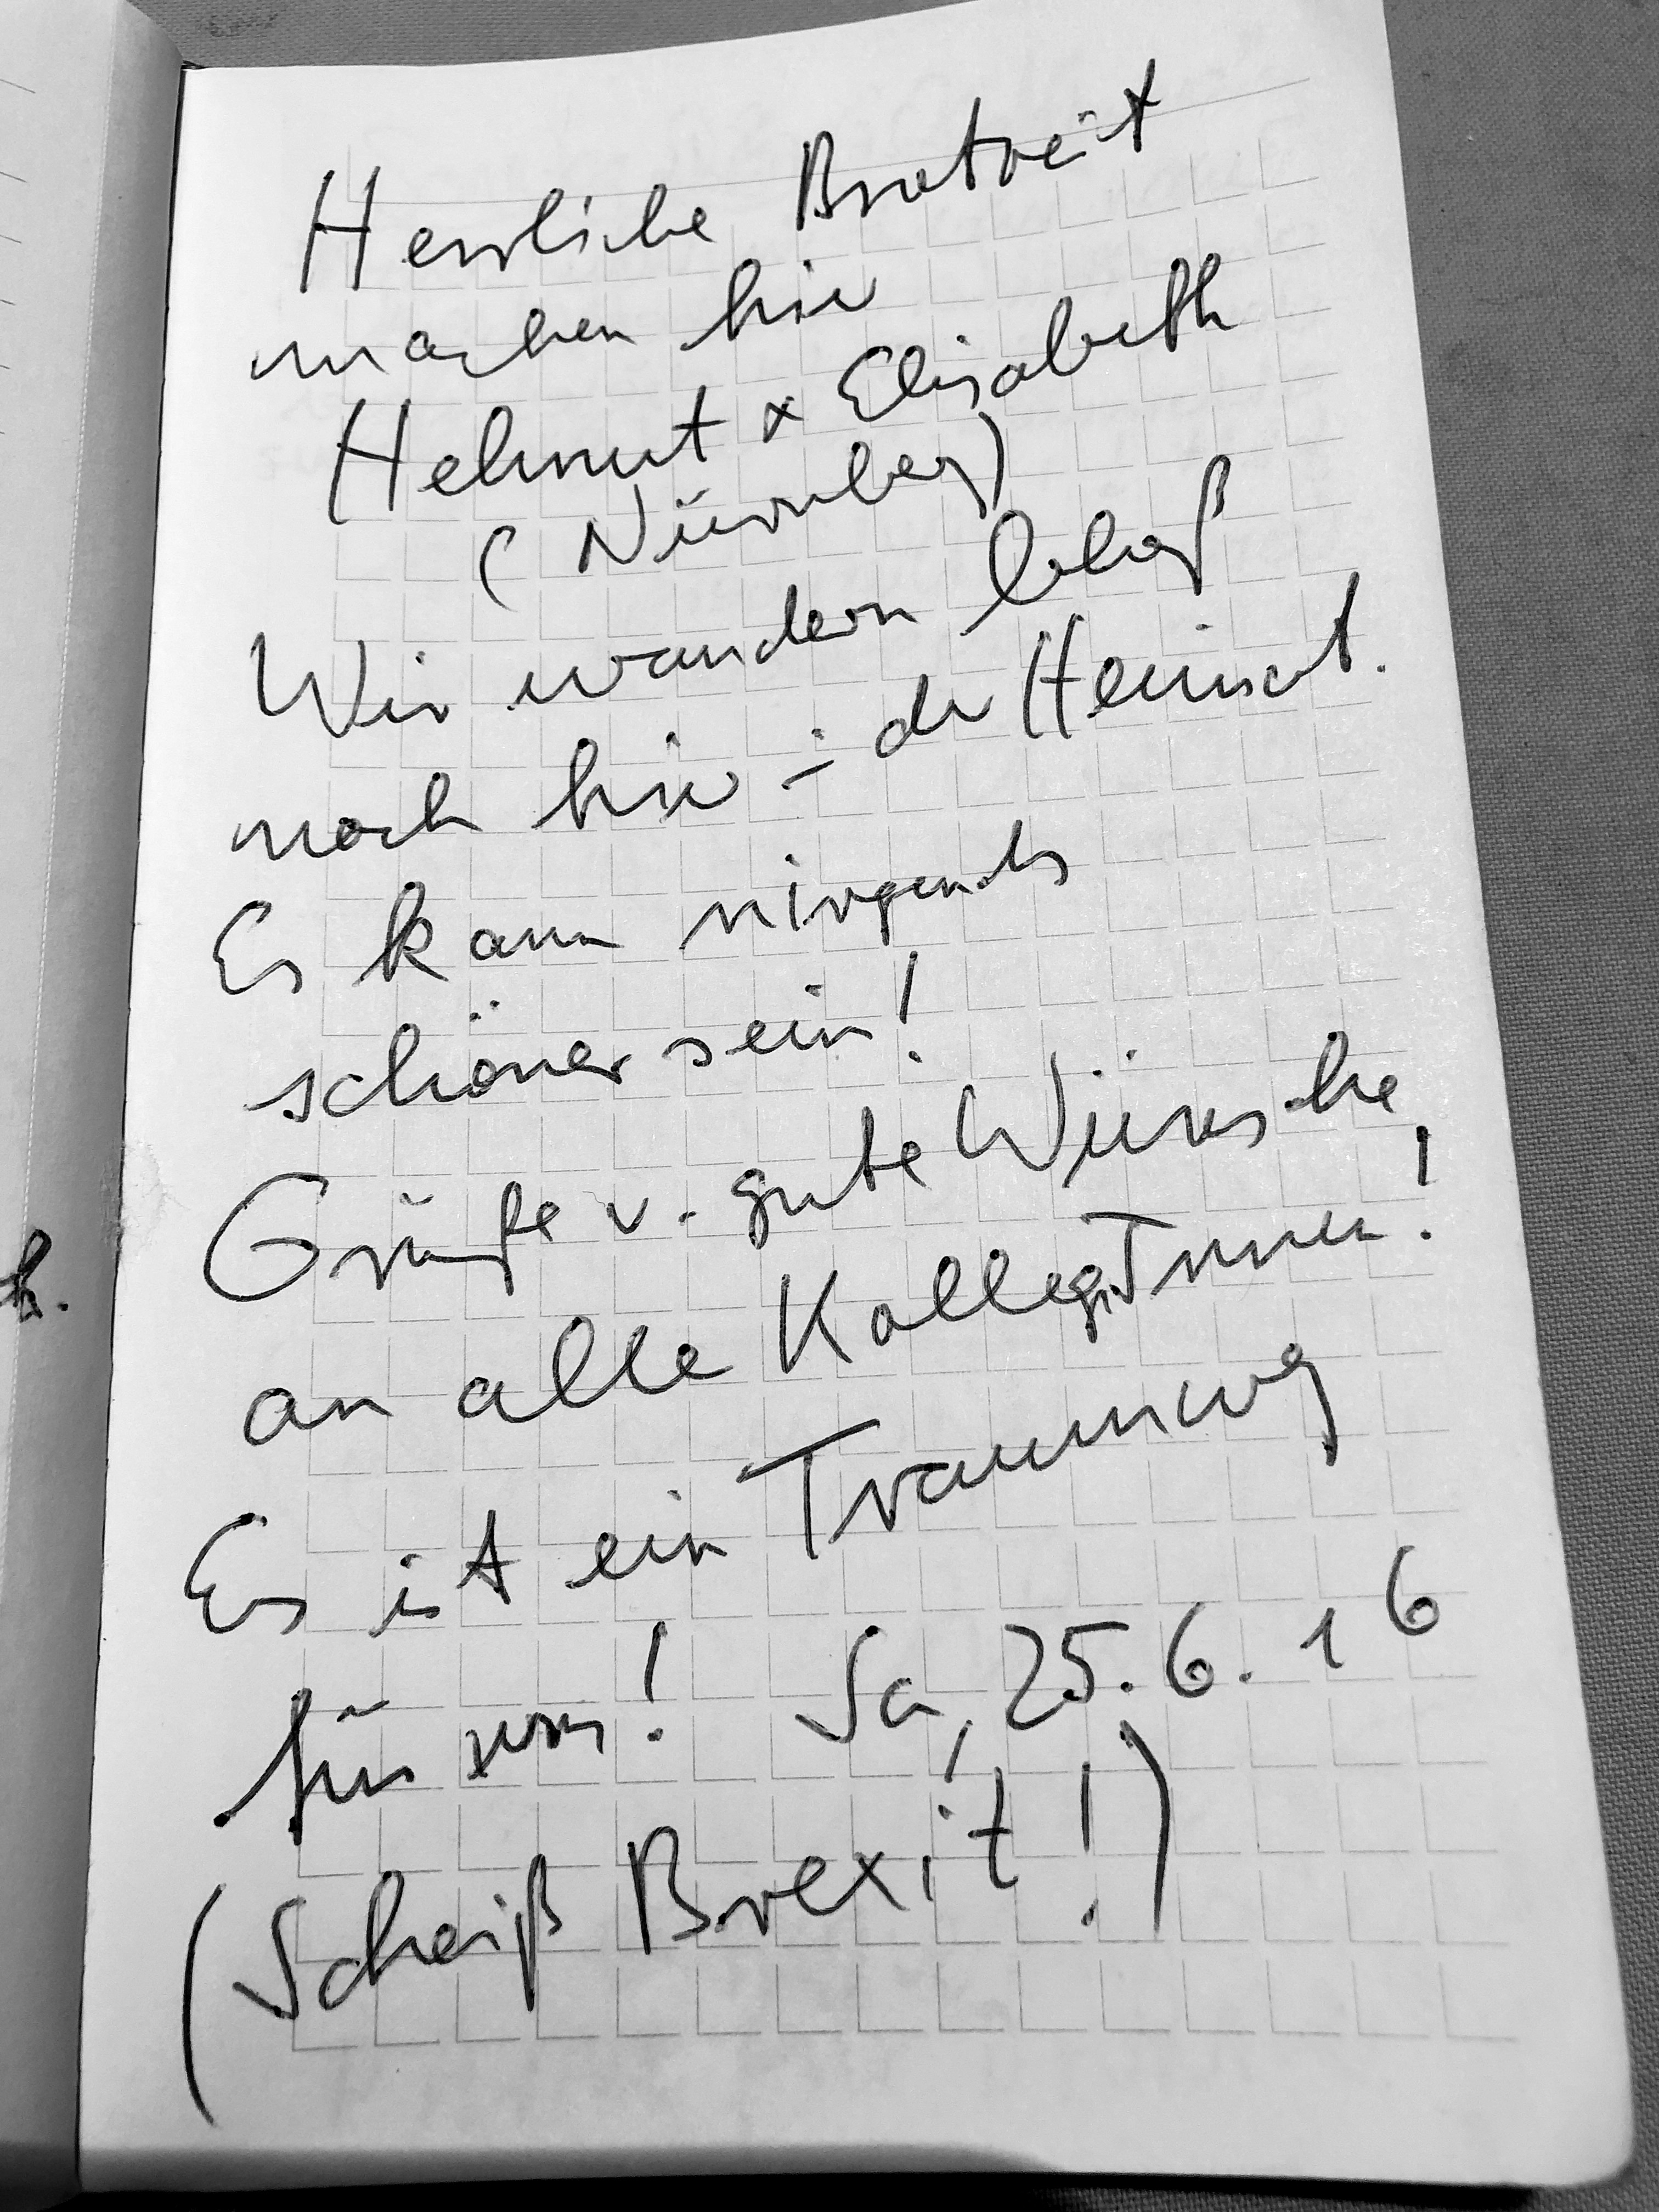 Herrliche Brotzeit
machen hier
Helmut + Elisabeth
(Nürnberg)
Wir wandern bloß
noch hier i. der Heimat.
Es kann nirgends
schöner sein!
Grüße u. gute Wünsche
an alle KollegInnen!
Es ist ein Traumweg
für uns! Sa, 25.6.16
(Scheiß Brexit!)